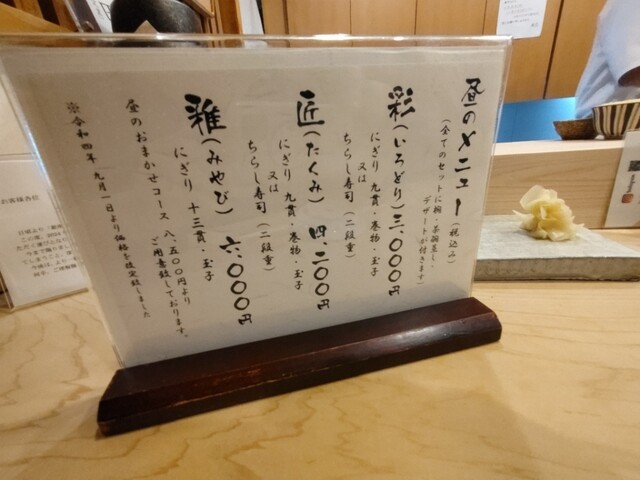 昼のメニュー(税込み)
(全てのセットに椀・茶碗蒸し
デザートが付きます)
彩(いろどり)三、〇〇〇円
にぎり 九貫・巻物・玉子
又は
ちらし寿司(二段重)
匠(たくみ)四、二〇〇円
にぎり 九貫・巻物・玉子
又は
ちらし寿司(二段重)
雅(みやび)六、〇〇〇円
にぎり 十三貫・玉子
昼のおまかせコース 八、五〇〇円より
ご用意致しております。
※令和四年 九月一日より価格を改定致しました
お客様各位